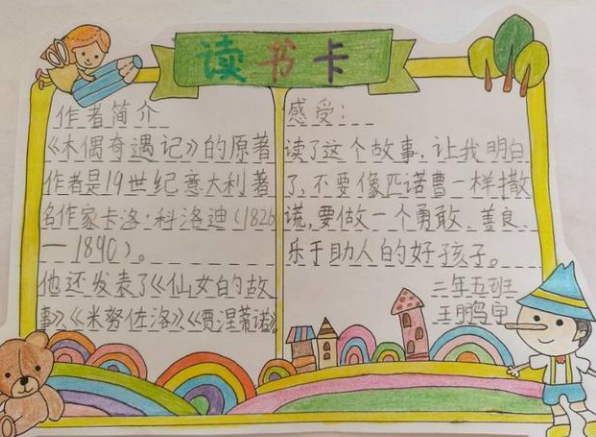 读书卡
作者简介
《木偶奇遇记》的原著
作者是19世纪意大利著
名作家卡洛·科洛迪(1826
—1890)。
他还发表了《仙女的故
事》《米努佐洛》《贾涅蒂诺》
感受：
读了这个故事,让我明白
了,不要像匹诺曹一样撒
谎,要做一个勇敢、善良、
乐于助人的好孩子。
二年五班
王鹏宇